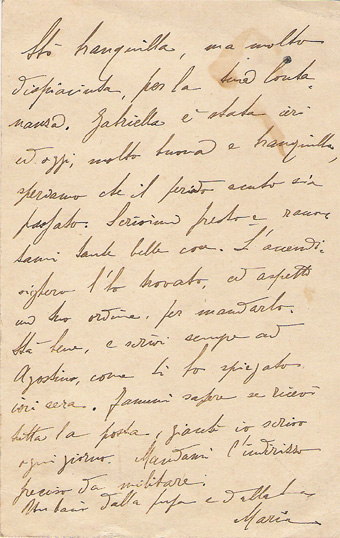 Stò tranquilla, ma molto
dispiaciuta, per la tua lonta-
nanza. Gabriella è stata ieri
ed oggi, molto buona e tranquilla,
speriamo che il periodo acuto sia
passato. Scrivimi presto e raccon-
tami tante belle cose. L'accendi-
sigaro l'ho trovato, ed aspetto
un tuo ordine, per mandarlo.
Stà bene, e scrivi sempre ad
Agostino, come ti ho spiegato
ieri sera. Fammi sapere se ricevi
tutta la posta, giacchè io scrivo
ogni giorno. Mandami l'indirizzo
preciso da militare.
Un bacio dalla pupa e dalla tua
Maria